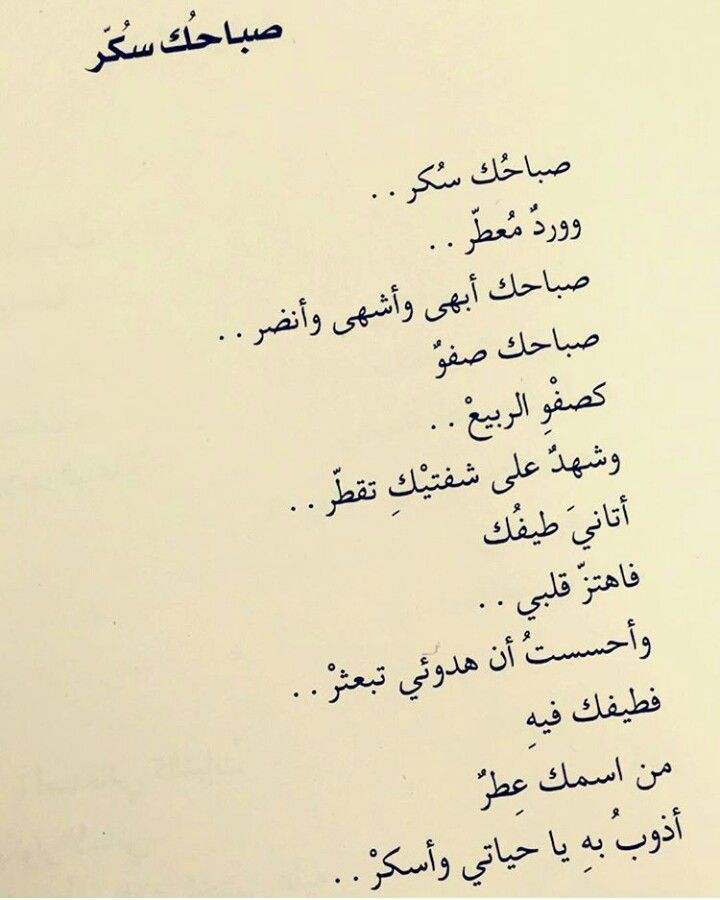 صباحُك سُكّر
صباحُك سُكر . .
ووردٌ مُعطّر . .
صباحك أبهى وأشهى وأنضر . .
صباحك صفوٌ
كصفْوِ الربيعْ . .
وشهدٌ على شفتيْكِ تقطّر . .
أتانيَ طيفُك
فاهتزّ قلبي . .
وأحسستُ أن هدوئي تبعثرْ . .
فطيفك فيهِ
من اسمك عِطرٌ
أذوبُ بهِ يا حياتي وأسكرْ . .